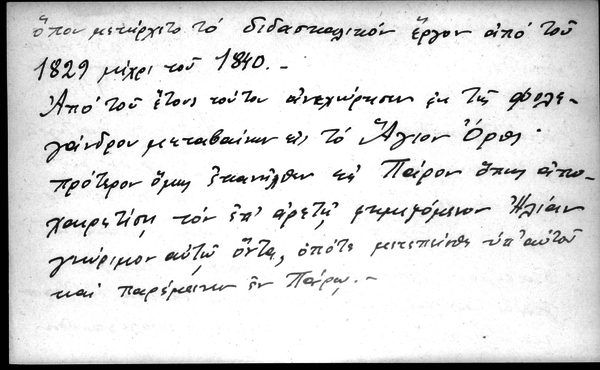 ὅπου μετήρχετο τό διδασκαλικόν ἔργον ἀπό τοῦ
1829 μέχρι τοῦ 1840.—
Ἀπό τοῦ ἔτους τούτου ἀνεχώρησεν ἐκ τῆς Φολε-
γάνδρου μεταβαίνων εἰς τό Ἅγιον Ὄρος·
πρότερον ὅμως ἐπανῆλθεν εἰς Πάρον ὅπως ἀπο-
χαιρετίσῃ τόν ἐπ' ἀρετῇ φημιζόμενον Ἠλίαν
γνώριμον αὐτῷ ὄντα, ὁπότε μετεπείσθη ὑπ' αὐτοῦ
καί παρέμεινεν ἐν Πάρῳ.—